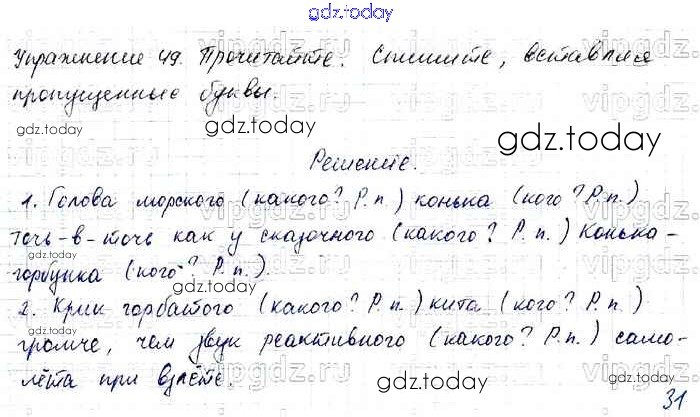 gdz.today
Упражнение 49. Прочитайте. Спишите, вставляя
пропущенные буквы.
gdz.today
gdz.today
Решение.
gdz.today
1. Голова морского (какого? Р.п.) конька (кого? Р.п.)
точь-в-точь как у сказочного (какого? Р.п.) Конька-
горбунка (кого? Р.п.).
gdz.today
2. Крик горбатого (какого? Р.п.) кита (кого? Р.п.)
gdz.today
громче, чем звук реактивного (какого? Р.п.) само-
лёта при взлёте.
gdz.today
gdz.today
31